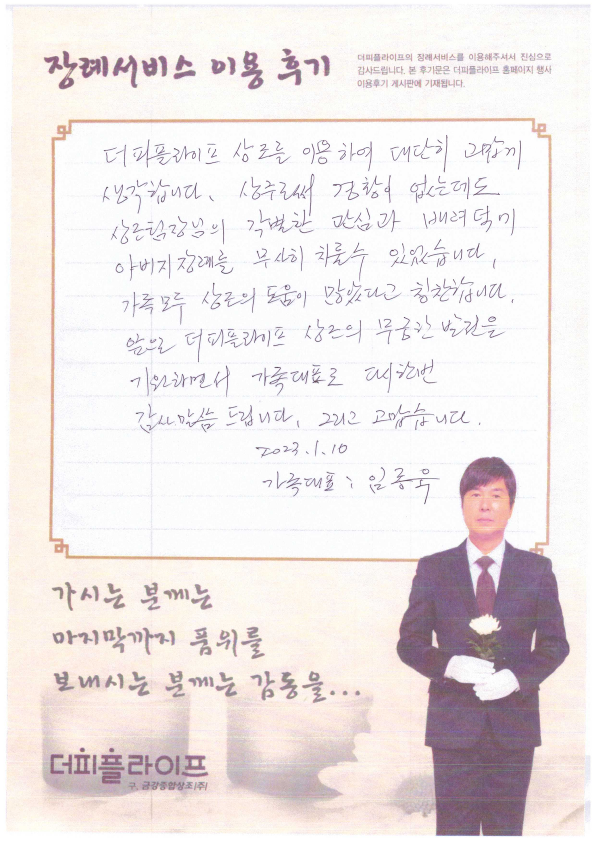 장례서비스 이용 후기
더피플라이프의 장례서비스를 이용해주셔서 진심으로
감사드립니다. 본 후기문은 더피플라이프 홈페이지 행사
이용후기 게시판에 기재됩니다.
더피플라이프 상조를 이용하여 대단히 고맙게
생각합니다. 상주로써 경황이 없는데도
상조팀장님의 각별한 관심과 배려덕에
아버지장례를 무사히 치룰수 있었습니다.
가족모두 상조의 도움이 많았다고 칭찬합니다.
앞으로 더피플라이프 상조의 무궁한 발전을
기원하면서 가족대표로 다시한번
감사말씀 드립니다. 그리고 고맙습니다.
2023.1.10
가족대표 : 임종욱
가시는 분께는
마지막까지 품위를
보내시는 분께는 감동을...
더피플라이프
구. 금강종합상조(주)